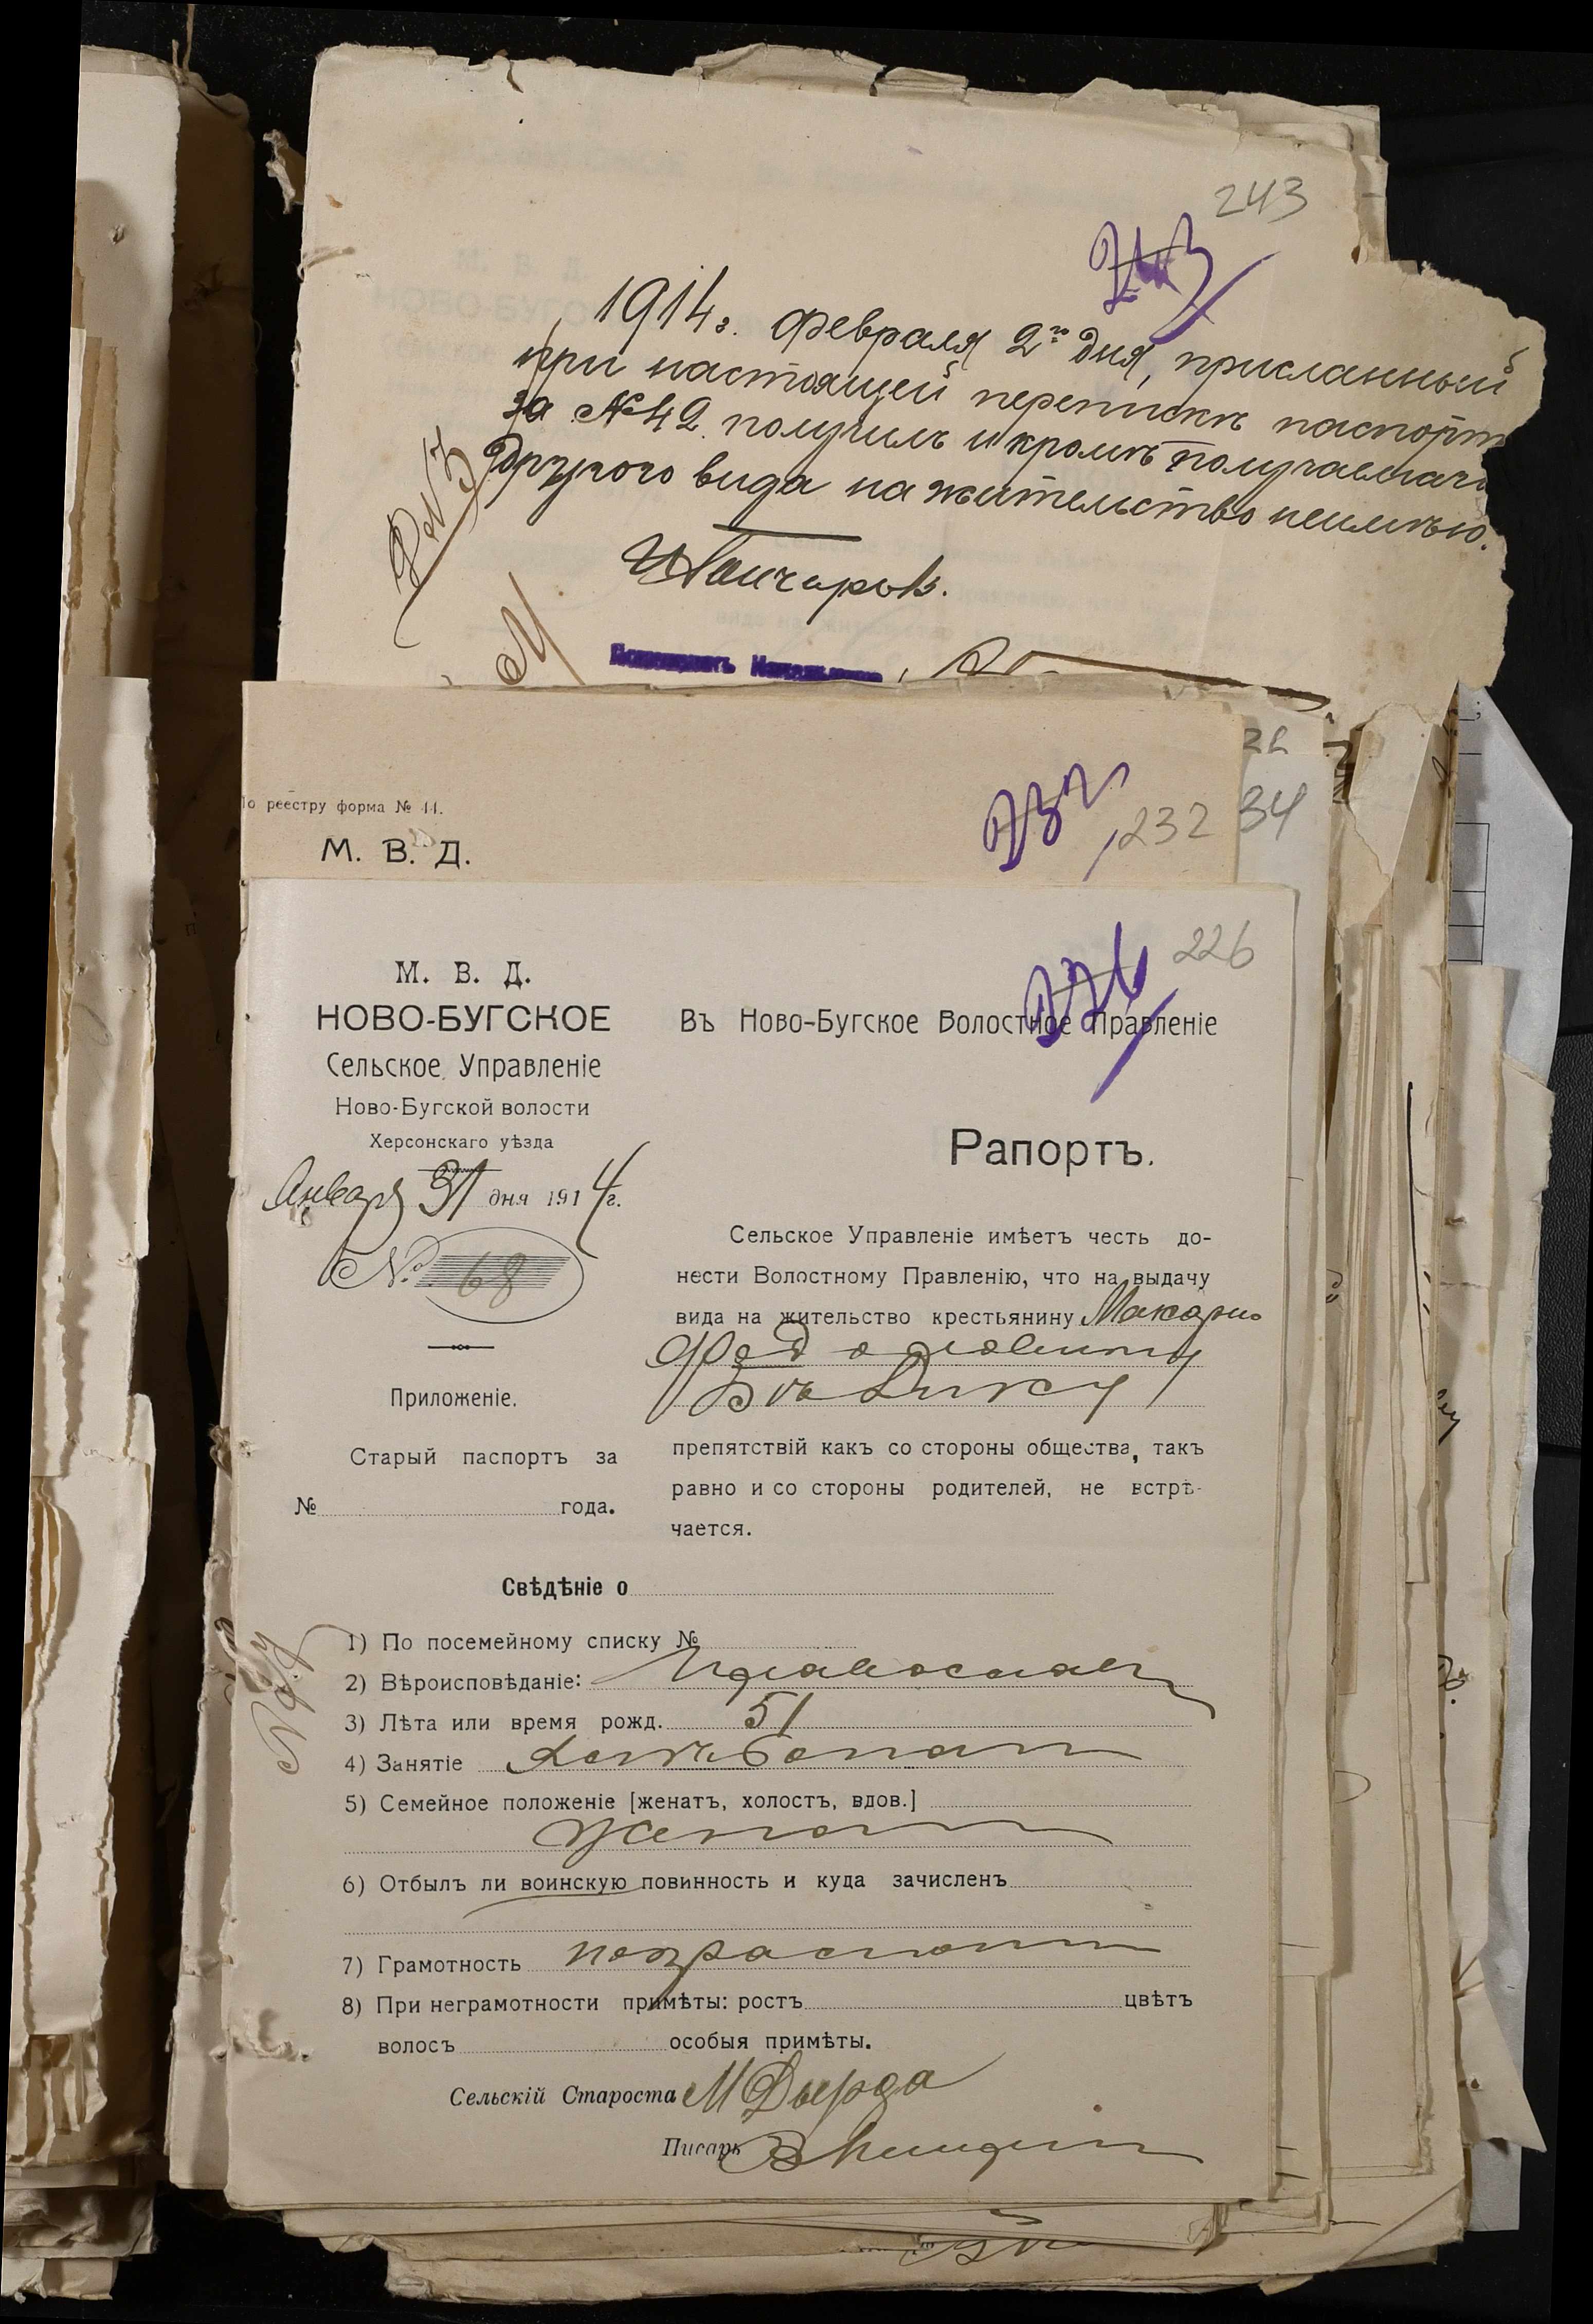 243
243
1914 г. Февраля 2го дня, присланный
при настоящей перепискѣ паспортъ
за № 42 получилъ и кромѣ получаемаго
другого вида на жительство неимѣю.
232
По реестру форма № 44.
232
34
М. В. Д.
226
226
М. В. Д.
НОВО-БУГСКОЕ
Сельское Управленіе
Ново-Бугской волости
Херсонскаго уѣзда
Января 31 дня 1914 г.
№ 68
Приложеніе.
Старый паспортъ за
№ года.
Въ Ново-Бугское Волостное Правленіе
Рапортъ.
Сельское Управленіе имѣетъ честь до-
нести Волостному Правленію, что на выдачу
вида на жительство крестьянину Макарию
препятствій какъ со стороны общества, такъ
равно и со стороны родителей, не встрѣ-
чается.
Свѣдѣніе о
1) По посемейному списку №
2) Вѣроисповѣданіе: Православн
3) Лѣта или время рожд. 51
4) Занятіе Хлѣбопаш
5) Семейное положеніе [женатъ, холостъ, вдов.]
Женат
6) Отбылъ ли воинскую повинность и куда зачисленъ
7) Грамотность
8) При неграмотности примѣты: ростъ цвѣтъ
волосъ особыя примѣты.
Сельскій Староста М Дырда
Писарь